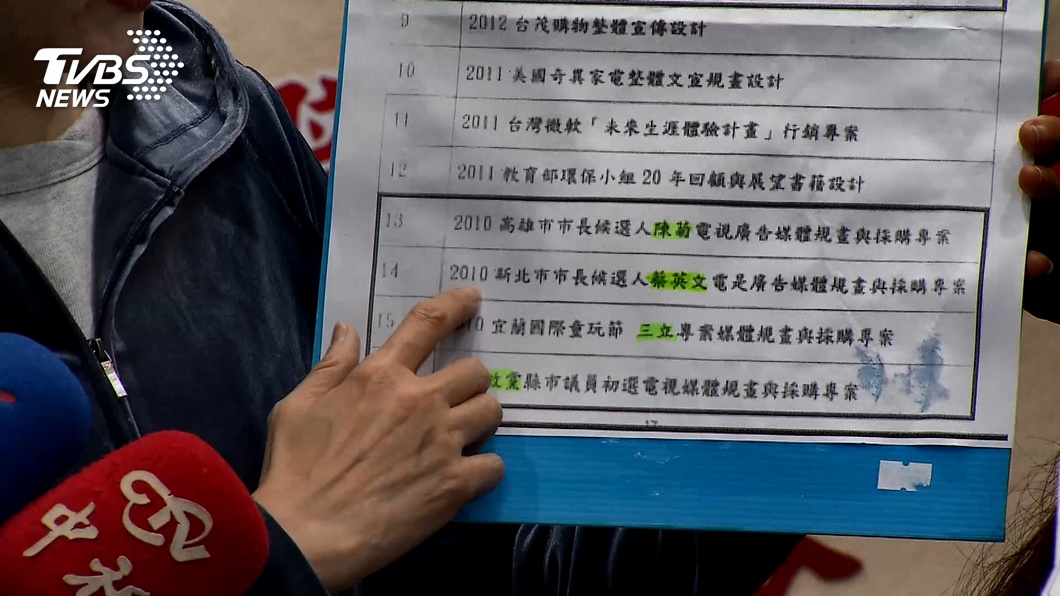 TVBS
NEWS
9 2012 台茂購物整體宣傳設計
10 2011 美國奇異家電整體文宣規畫設計
11 2011 台灣微軟「未來生涯體驗計畫」行銷專案
12 2011 教育部環保小組 20 年回顧與展望書籍設計
13 2010 高雄市市長候選人陳菊電視廣告媒體規畫與採購專案
14 2010 新北市市長候選人蔡英文電是廣告媒體規畫與採購專案
15 10 宜蘭國際童玩節 三立專案媒體規畫與採購專案
黨縣市議員初選電視媒體規畫與採購專案
17
中